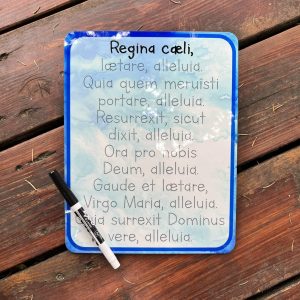 Regina cæli,
lætare, alleluia.
Quia quem meruisti
portare, alleluia.
Resurrexit, sicut
dixit, alleluia.
Ora pro nobis
Deum, alleluia.
Gaude et lætare,
Virgo Maria, alleluia.
Quia surrexit Dominus
vere, alleluia.